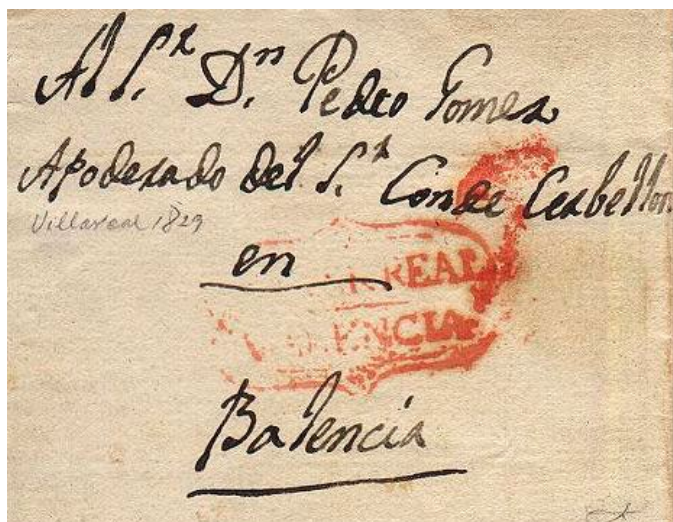 Al S.r D.n Pedro Gomez
Apoderado del S.r Conde Cerbellon
Villareal 1829
en
RREAL
LENCIA
Balencia